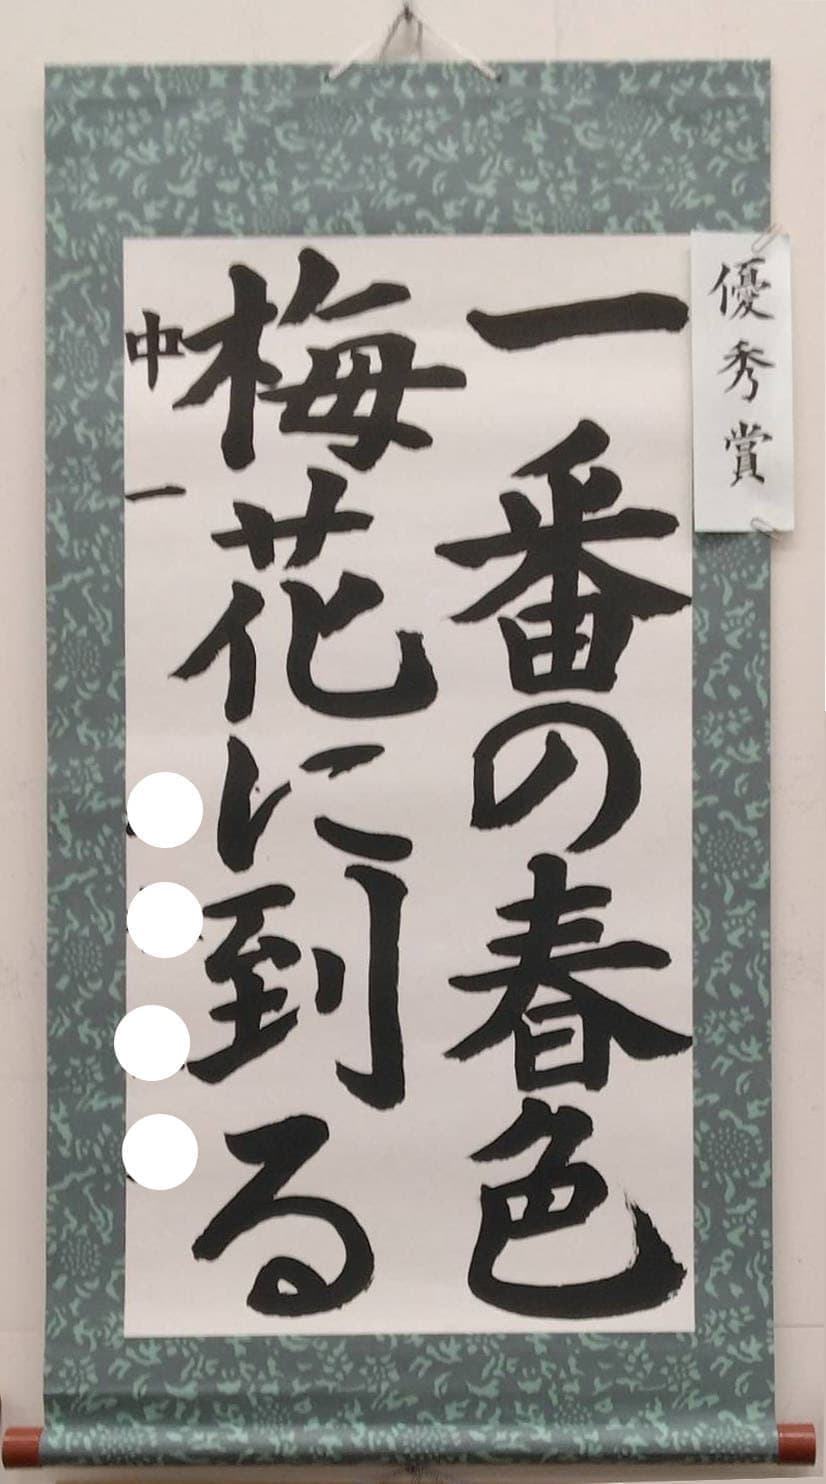 優秀賞
一番の春色
梅花に到る
中一